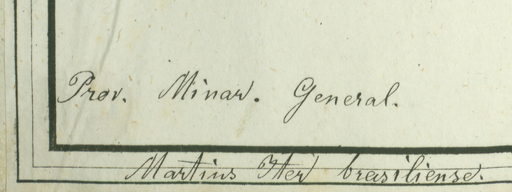 Prov. Minar. General.
Martius Iter brasiliense.